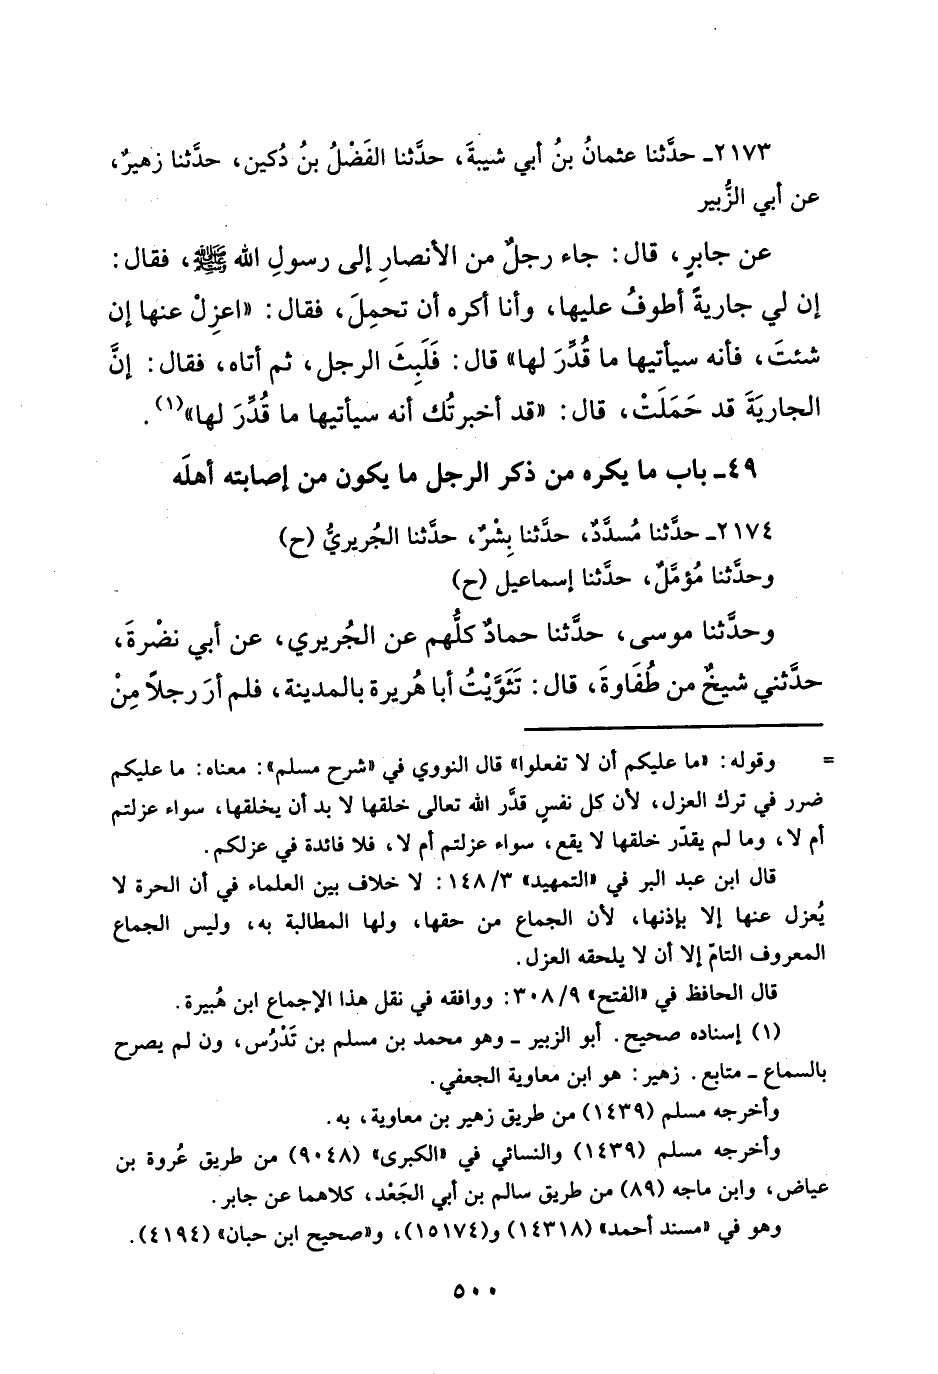 ٢١٧٣ـ حدَّثنا عثمانُ بنُ أبي شيبةَ، حدَّثنا الفَضْلُ بنُ دُكين، حدَّثنا زهيرٌ،
عن أبي الزُّبير
عن جابرٍ، قال: جاء رجلٌ من الأنصارِ إلى رسولِ الله ﷺ، فقال:
إن لي جاريةً أطوفُ عليها، وأنا أكره أن تحمِلَ، فقال: «اعزِلْ عنها إن
شئتَ، فأنه سيأتيها ما قُدِّرَ لها» قال: فَلَبِثَ الرجل، ثم أتاه، فقال: إنَّ
الجاريَةَ قد حَمَلَتْ، قال: «قد أخبرتُك أنه سيأتيها ما قُدِّرَ لها»(١).
٤٩ـ باب ما يكره من ذكر الرجل ما يكون من إصابته أهلَه
٢١٧٤ـ حدَّثنا مُسدَّدٌ، حدَّثنا بِشْرٌ، حدَّثنا الجُريريُّ (ح)
وحدَّثنا مُؤمَّلٌ، حدَّثنا إسماعيل (ح)
وحدَّثنا موسى، حدَّثنا حمادٌ كلُّهم عن الجُريري، عن أبي نضْرةَ،
حدَّثني شيخٌ من طُفَاوةَ، قال: تَثَوَّيْتُ أبا هُريرة بالمدينة، فلم أرَ رجلاً مِنْ
= وقوله: «ما عليكم أن لا تفعلوا» قال النووي في «شرح مسلم»: معناه: ما عليكم
ضرر في ترك العزل، لأن كل نفسٍ قدَّر الله تعالى خلقها لا بد أن يخلقها، سواء عزلتم
أم لا، وما لم يقدّر خلقها لا يقع، سواء عزلتم أم لا، فلا فائدة في عزلكم.
قال ابن عبد البر في «التمهيد» ١٤٨/٣: لا خلاف بين العلماء في أن الحرة لا
يُعزل عنها إلا بإذنها، لأن الجماع من حقها، ولها المطالبة به، وليس الجماع
المعروف التامّ إلا أن لا يلحقه العزل.
قال الحافظ في «الفتح» ٣٠٨/٩: ووافقه في نقل هذا الإجماع ابن هُبيرة.
(١) إسناده صحيح. أبو الزبير ـ وهو محمد بن مسلم بن تَدْرُس، ون لم يصرح
بالسماع ـ متابع. زهير: هو ابن معاوية الجعفي.
وأخرجه مسلم (١٤٣٩) من طريق زهير بن معاوية، به.
وأخرجه مسلم (١٤٣٩) والنسائي في «الكبرى» (٩٠٤٨) من طريق عُروة بن
عياض، وابن ماجه (٨٩) من طريق سالم بن أبي الجَعْد، كلاهما عن جابر.
وهو في «مسند أحمد» (١٤٣١٨) و(١٥١٧٤)، و«صحيح ابن حبان» (٤١٩٤).
٥٠٠